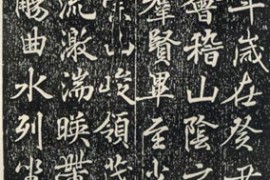 年歲在癸丑
會稽山陰之
羣賢畢至少
崇山峻領茂
流激湍暎帶
觴曲水列坐